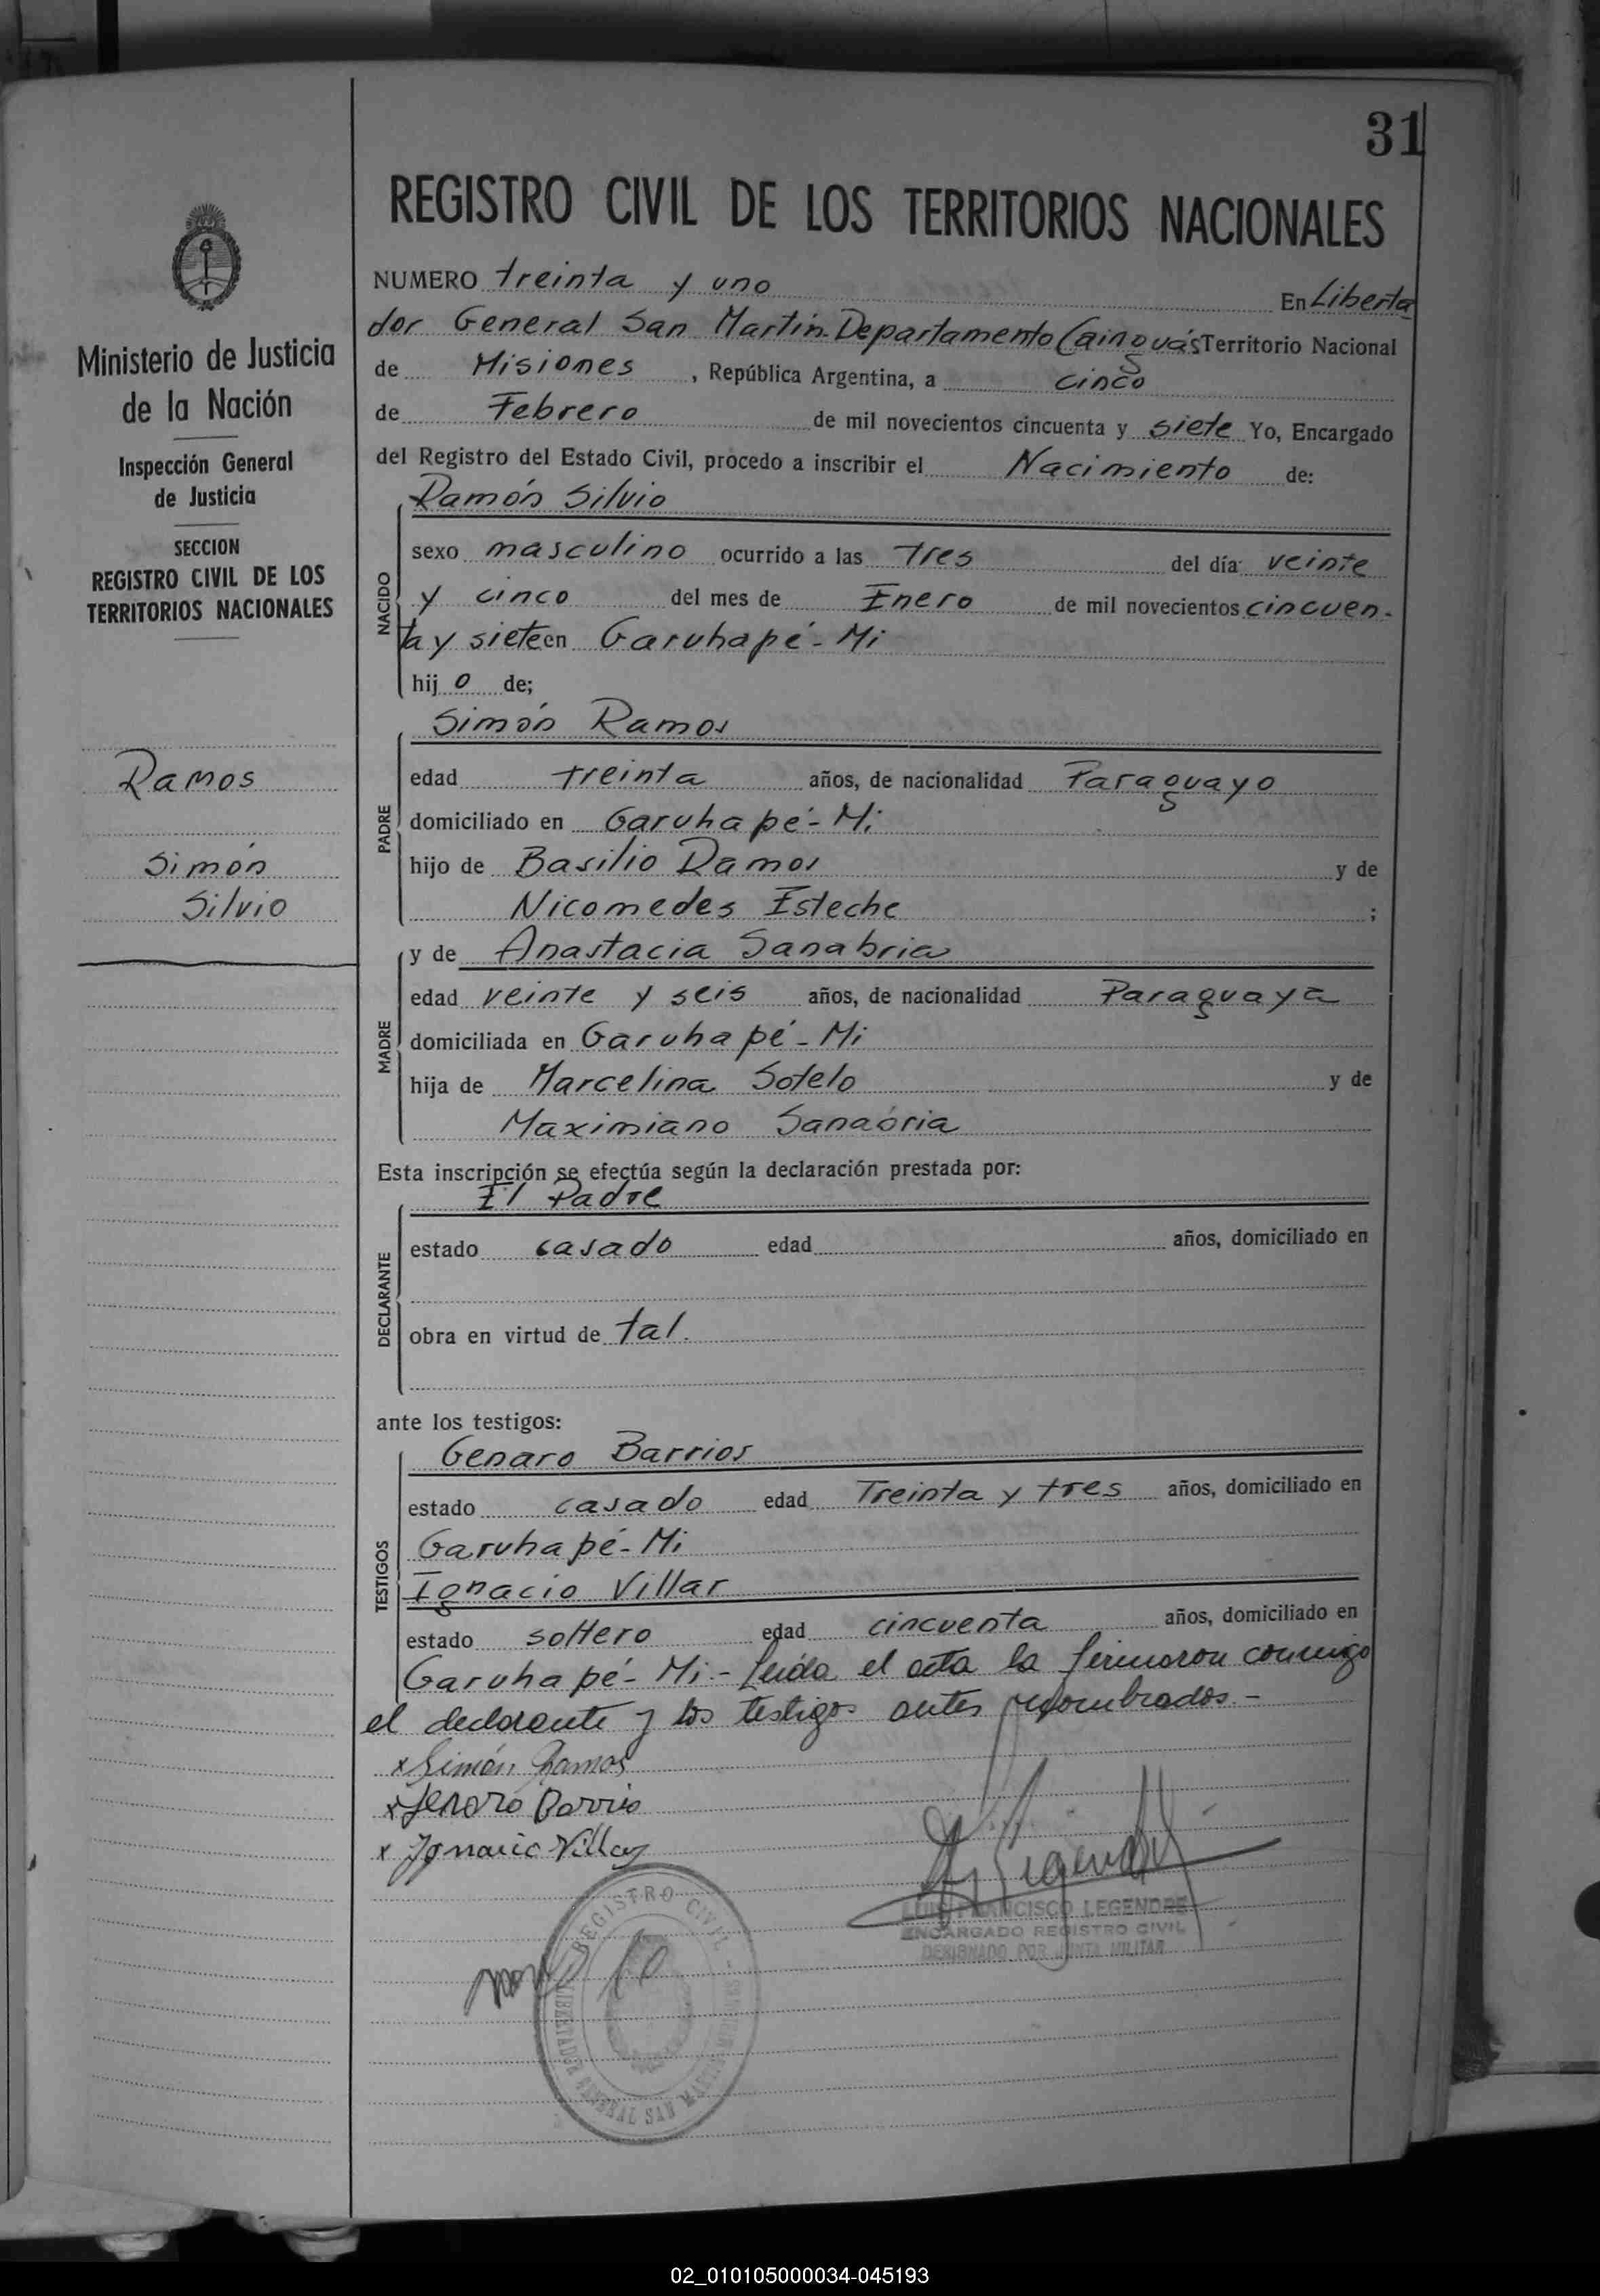 31
REGISTRO CIVIL DE LOS TERRITORIOS NACIONALES
Ministerio de Justicia
de la Nación
Inspección General
de Justicia
SECCION
REGISTRO CIVIL DE LOS
TERRITORIOS NACIONALES
Ramos
Simón
Silvio
NUMERO treinta y uno En Liberta
dor General San Martín Departamento Cainguás Territorio Nacional
de Misiones , República Argentina, a cinco
de Febrero de mil novecientos cincuenta y siete Yo, Encargado
del Registro del Estado Civil, procedo a inscribir el Nacimiento de:
NACIDO
Ramón Silvio
sexo masculino ocurrido a las tres del día veinte
y cinco del mes de Enero de mil novecientos cincuen-
ta y siete en Garuhapé - Mi
hij o de;
PADRE
Simón Ramos
edad treinta años, de nacionalidad Paraguayo
domiciliado en Garuhapé - Mi
hijo de Basilio Ramos y de
Nicomedes Esteche ;
MADRE
y de Anastacia Sanabria
edad veinte y seis años, de nacionalidad Paraguaya
domiciliada en Garuhapé - Mi
hija de Marcelina Sotelo y de
Maximiano Sanabria
Esta inscripción se efectúa según la declaración prestada por:
DECLARANTE
El Padre
estado casado edad años, domiciliado en
obra en virtud de tal.
ante los testigos:
TESTIGOS
Genaro Barrios
estado casado edad Treinta y tres años, domiciliado en
Garuhapé - Mi
Ignacio Villar
estado soltero edad cincuenta años, domiciliado en
Garuhapé - Mi - Leída el acta la firmaron conmigo
el declarante y los testigos antes nombrados. -
x Simón Ramos
x Jenaro Barrio
x Ignacio Villar
LUIS FRANCISCO LEGENDRE
ENCARGADO REGISTRO CIVIL
DESIGNADO POR JUNTA MILITAR
REGISTRO CIVIL
LIBERTADOR GENERAL SAN MARTIN MISIONES
02_010105000034-045193